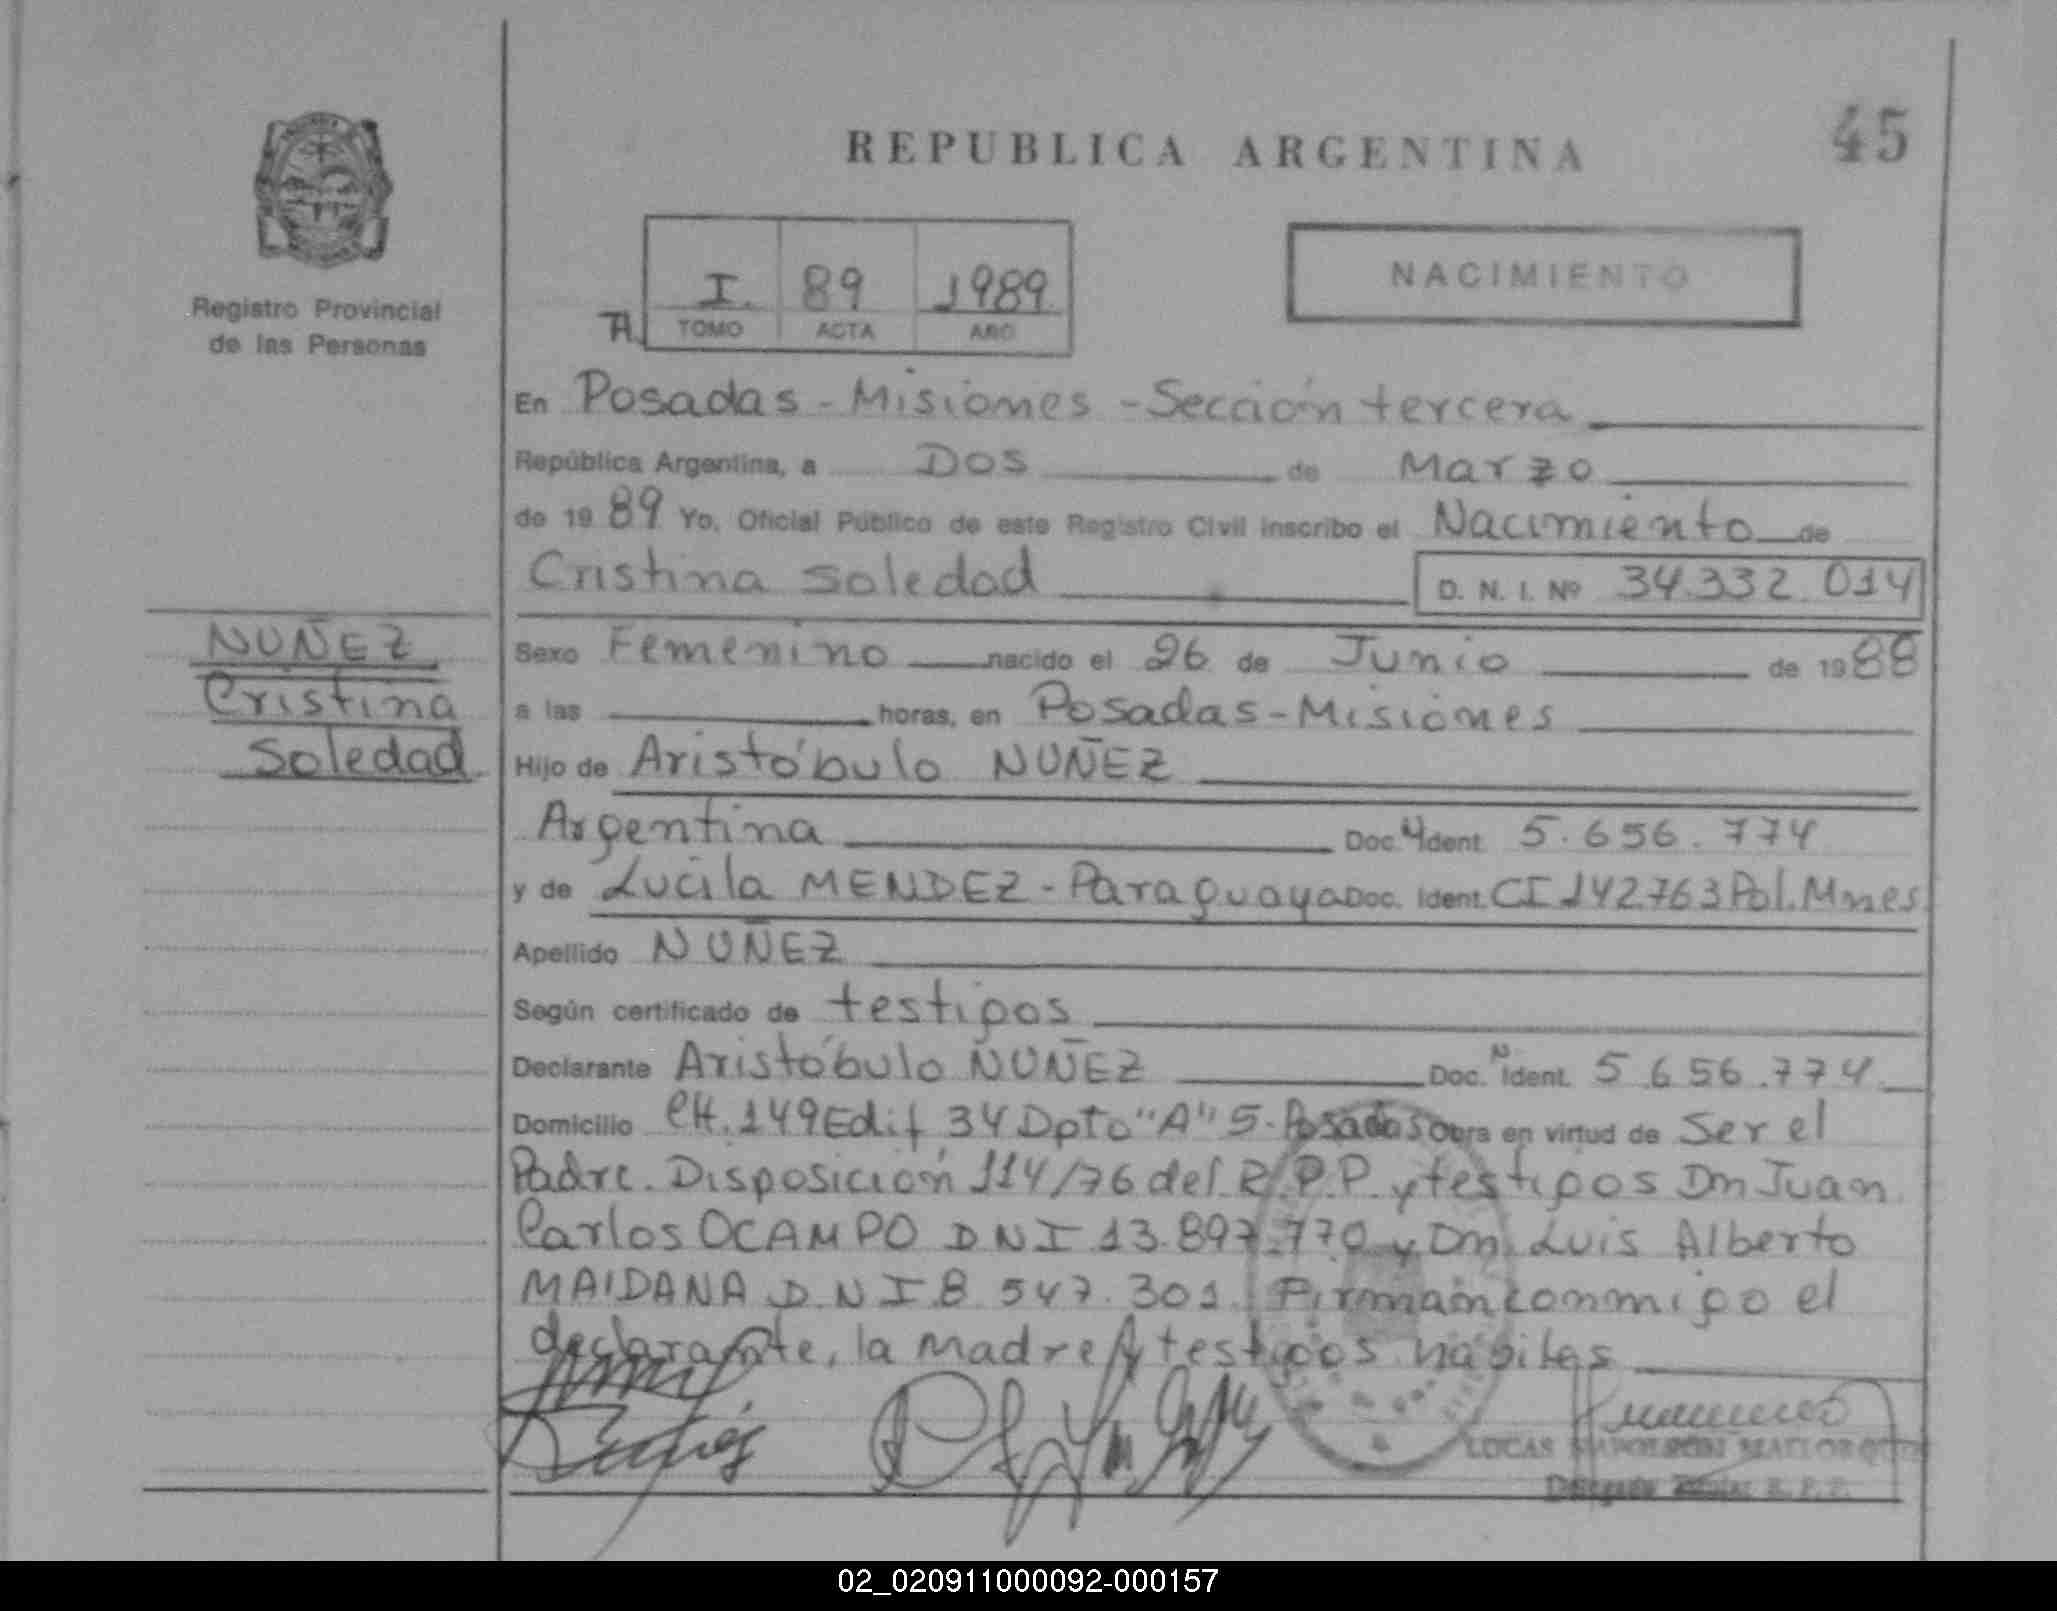 REPUBLICA ARGENTINA
45
Registro Provincial
de las Personas
I. 89 1989
TOMO ACTA AÑO
NACIMIENTO
En Posadas - Misiones - Sección tercera
República Argentina, a Dos de Marzo
de 1989 Yo, Oficial Público de este Registro Civil inscribo el Nacimiento de
Cristina Soledad D. N. I. Nº 34.332.014
NUÑEZ
Cristina
Soledad
Sexo Femenino nacido el 26 de Junio de 1988
a las horas, en Posadas - Misiones
Hijo de Aristóbulo NUÑEZ
Argentina Doc. Ident. 5.656.774
y de Lucila MENDEZ - Paraguaya Doc. Ident. CI 142.763 Pol. Mnes
Apellido NUÑEZ
Según certificado de testigos
Declarante Aristóbulo NUÑEZ Doc. Ident. 5.656.774
Domicilio CH. 149 Edif 34 Dpto "A" 5 - Posadas Obra en virtud de Ser el
Padre. Disposición 114/76 del R.P.P. y testigos Dn Juan
Carlos OCAMPO DNI 13.897.770 y Dn. Luis Alberto
MAIDANA D.N.I 8.547.301. Firman conmigo el
declarante, la madre y testigos hábiles
LUCAS NAPOLEON
R. P. P.
02_020911000092-000157